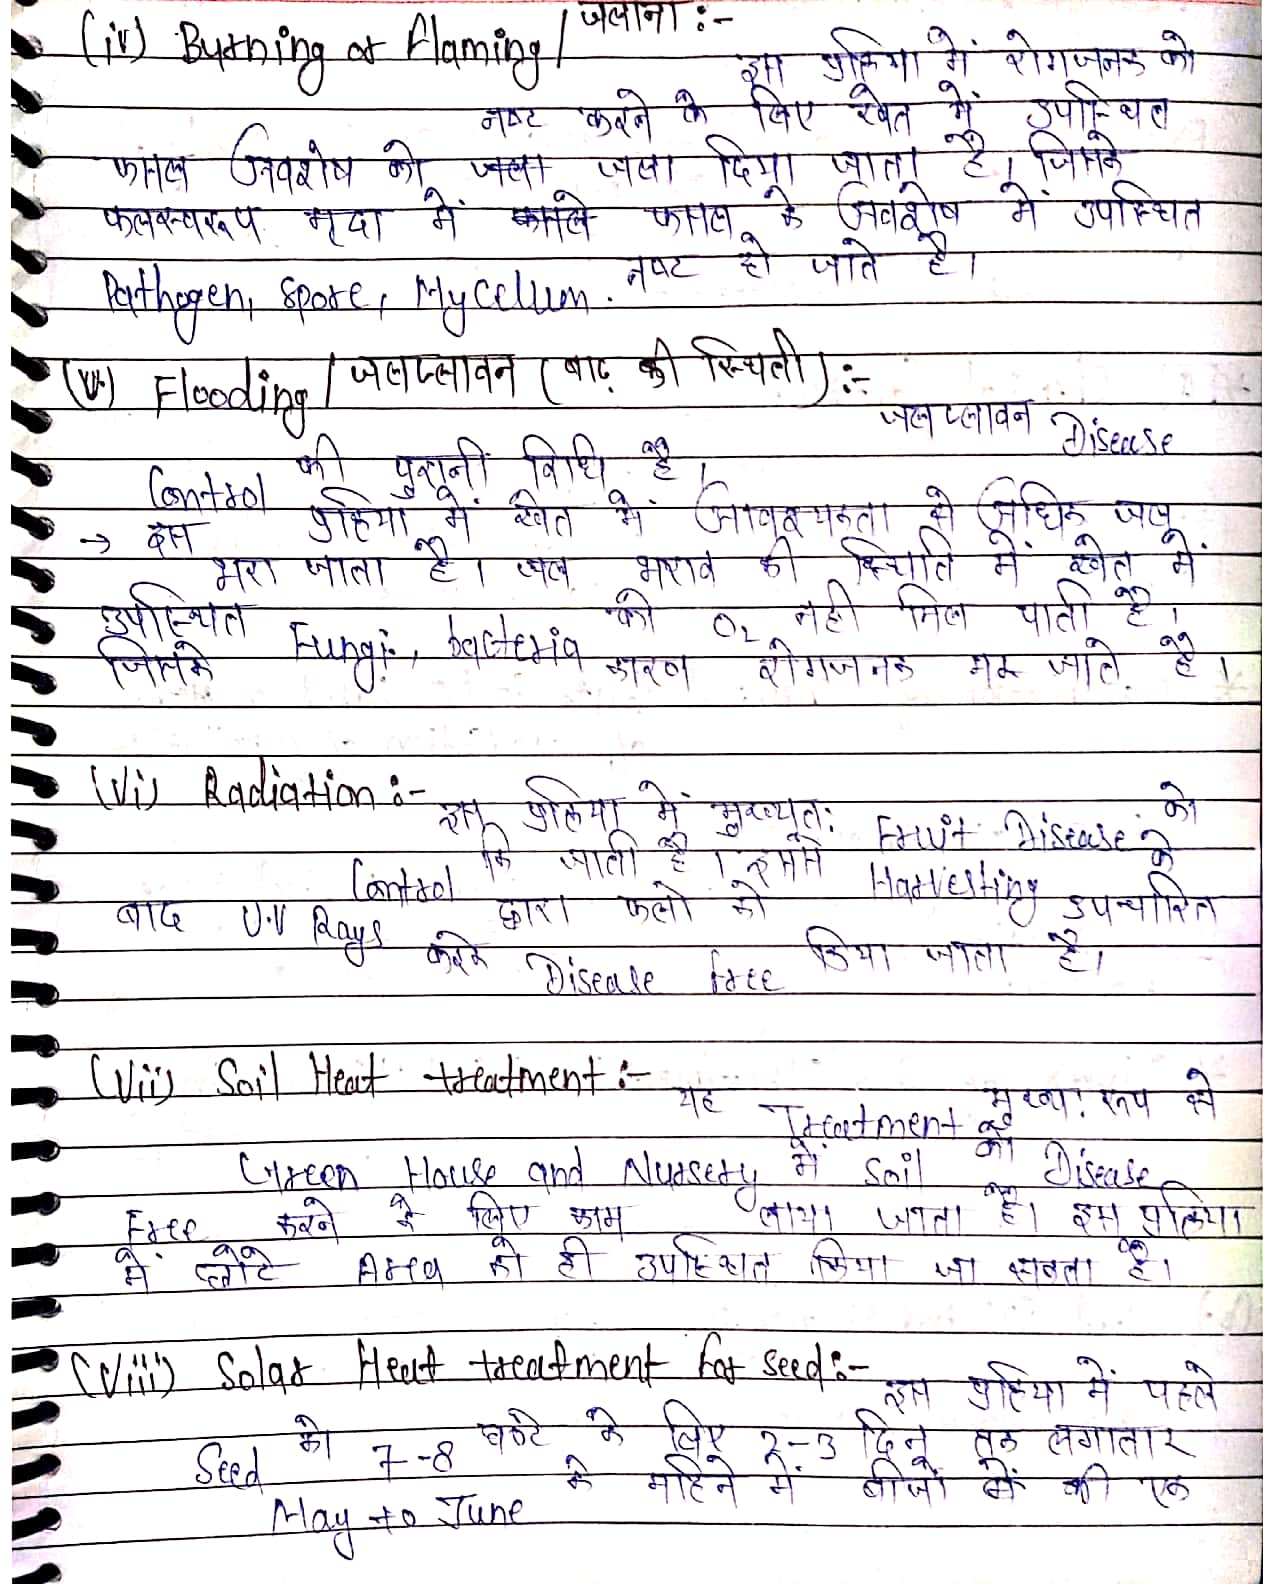 (iv) Burning or flaming / जलाना :-
इस प्रक्रिया में रोगजनक को
नष्ट करने के लिए खेत में उपस्थित
फसल अवशेष को जला जला दिया जाता है। जिसके
फलस्वरूप मृदा में फसल के अवशेष में उपस्थित
Pathogen, Spore, Mycelium. नष्ट हो जाते है।
(v) Flooding / जलप्लावन (बाढ़ की स्थिती) :-
जलप्लावन Disease
Control की पुरानीं विधि है।
→ इस प्रक्रिया में खेत में आवश्यकता से अधिक जल
भरा जाता है। जल भराव की स्थिति में खेत में
उपस्थित Fungi, bacteria को O2 नही मिल पाती है।
जिसके कारण रोगजनक मर जाते है।
(vi) Radiation :-
इस प्रक्रिया में मुख्यतः Fruit Disease को
Control कि जाती है। इसमें Harvesting के
बाद U.V Rays द्वारा फलो को उपचारित
करके Disease free किया जाता है।
(vii) Soil Heat treatment :-
यह Treatment मुख्य: रूप से
Green House and Nursery में Soil को Disease
Free करने के लिए काम लाया जाता है। इस प्रक्रिया
में छोटे Area को ही उपस्थित किया जा सकता है।
(viii) Solar Heat treatment for seed :-
इस प्रक्रिया में पहले
Seed को 7-8 घण्टे के लिए 2-3 दिन तक लगातार
May to June के महिने में बीजों की एक